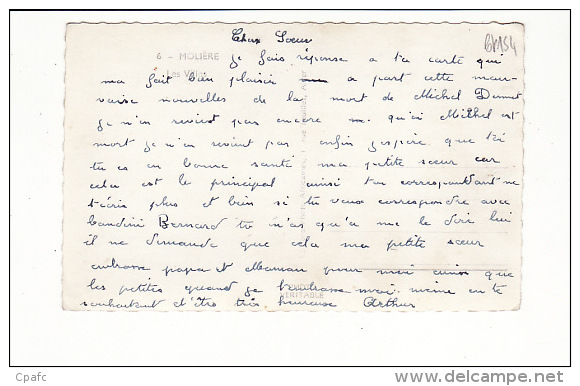 Chère Soeur
6 - MOLIÈRE
Les Vall
6M154
je fais réponse a ta carte qui
ma fait bien plaisir a part cette mau-
vaise nouvelles de la mort de Michel Dumet
je n'en revient pas encore qu'ei Mithel est
mort je n'en revient pas enfin j'espère que toi
tu es en bonne santé ma petite soeur car
cela est le principal ainsi ton correspondant ne
t'écris plus et bein si tu veux correspondre avec
Bernard tu n'as qu'a me le dire lui
il ne demande que cela ma petite soeur
embrasse papa et Maman pour moi ainsi que
les petites quand je t'embrasse moi même en te
souhaitant d'être très heureuse Arthur
VERITABLE
Cpafc
www.delcampe.net